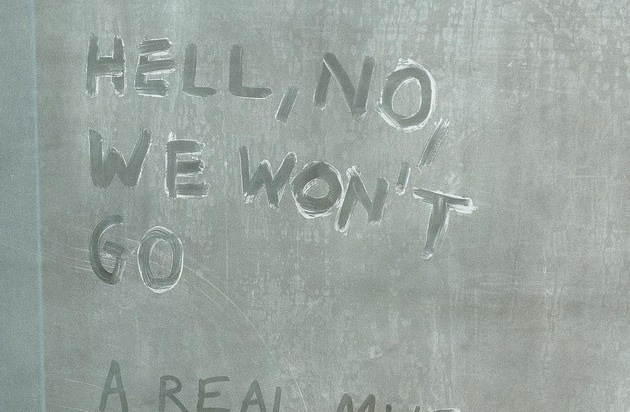 HELL, NO,
WE WON'T
GO
A REAL